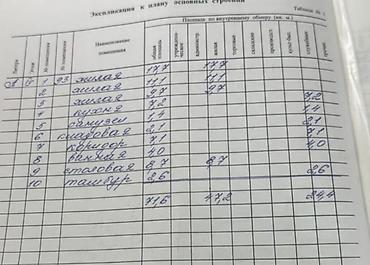 Экспликация к плану основных строений
Таблица № 1
Площадь по внутреннему обмеру (кв. м.)
Литера Этаж № помещения № помещения Наименование помещения общая площадь учрежденч. администр. жилая торговые складские производст. культ.быт. служебные прочие
1 93 жилая 17,7 17,7
2 жилая 11,1 11,1
3 жилая 9,7 9,7
4 кухня 7,2 7,2
5 санузел 1,4 1,4
6 кладовая 2,1 2,1
7 коридор 7,1 7,1
8 ванная 4,0 4,0
9 столовая 8,7 8,7
10 тамбур 2,6 2,6
71,6 47,2 24,4